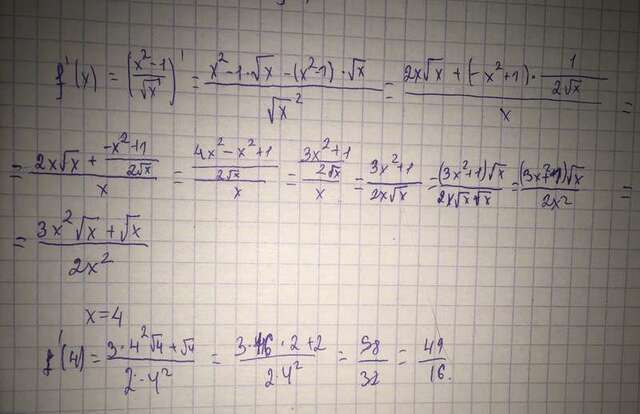 f'(x) = (x²-1/√x)' = x²-1·√x-(x²-1)·√x/√x² = 2x√x+(-x²+1)·1/2√x/x =
= 2x√x+-x²+1/2√x/x = 4x²-x²+1/2√x/x = 3x²+1/2√x/x = 3x²+1/2x√x = (3x²+1)√x/2x√x·√x = (3x²+1)√x/2x² =
= 3x²√x+√x/2x²
x=4
f'(4) = 3·4²√4+√4/2·4² = 3·16·2+2/2·4² = 98/32 = 49/16.